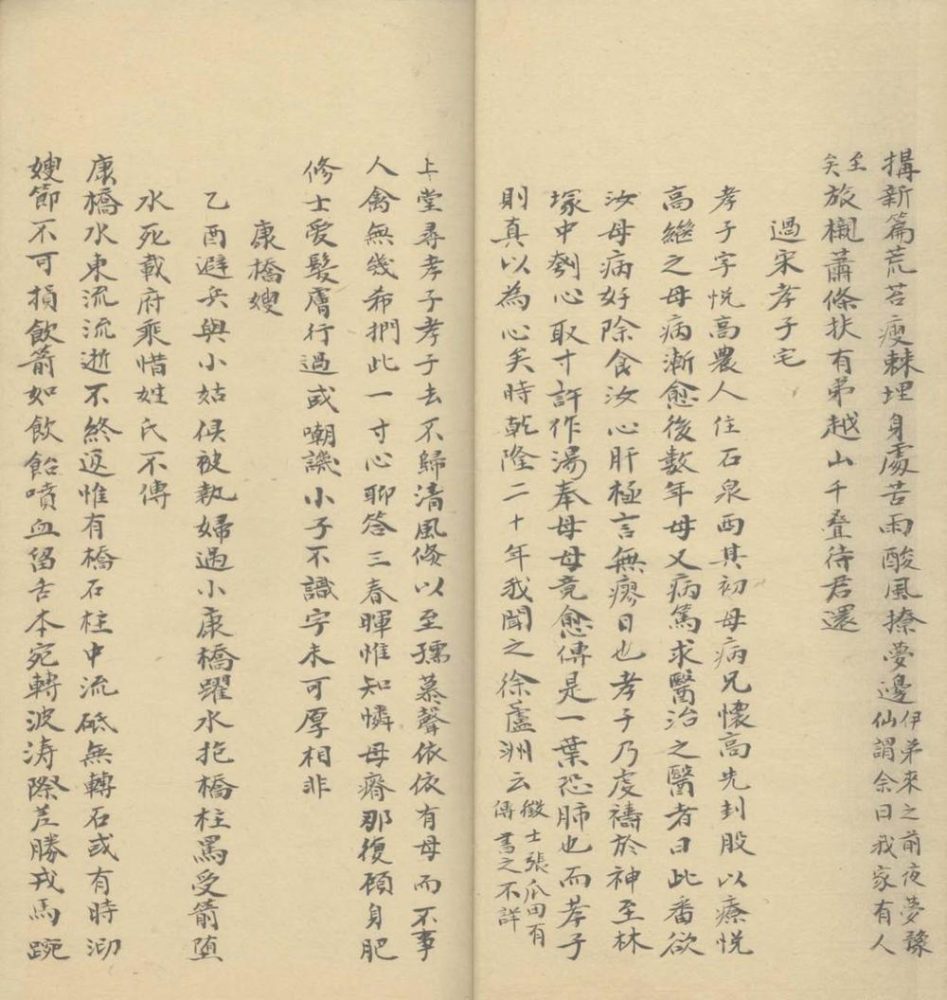 搆新篇荒苔瘦棘埋身處苦雨酸風撩夢邊伊弟來之前夜夢豫仙謂余曰我家有人
至矣旅櫬蕭條扶有弟越山千疊待君還
過宋孝子宅
孝子字悅高農人住石泉西其初母病兄懷高先刲股以療悅
高繼之母病漸愈後數年母又病篤求醫治之醫者曰此番欲
汝母病好除食汝心肝極言無瘳日也孝子乃虔禱於神至林
塚中刳心取寸許作湯奉母母竟愈傳是一葉恐肺也而孝子
則真以為心矣時乾隆二十年我聞之徐廬洲云徵士張瓜田有傳書之不詳
上堂尋孝子孝子去不歸清風倏以至孺慕聲依依有母而不事
人禽無幾希捫此一寸心聊答三春暉惟知憐母瘠那復顧身肥
修士愛髮膚行過或嘲譏小子不識字未可厚相非
康橋嫂
乙酉避兵與小姑俱被執婦過小康橋躍水抱橋柱罵受箭墮
水死載府乘惜姓氏不傳
康橋水東流流逝不終返惟有橋石柱中流砥無轉石或有時泐
嫂節不可損飲箭如飲飴噴血留舌本宛轉波濤際差勝戎馬踠